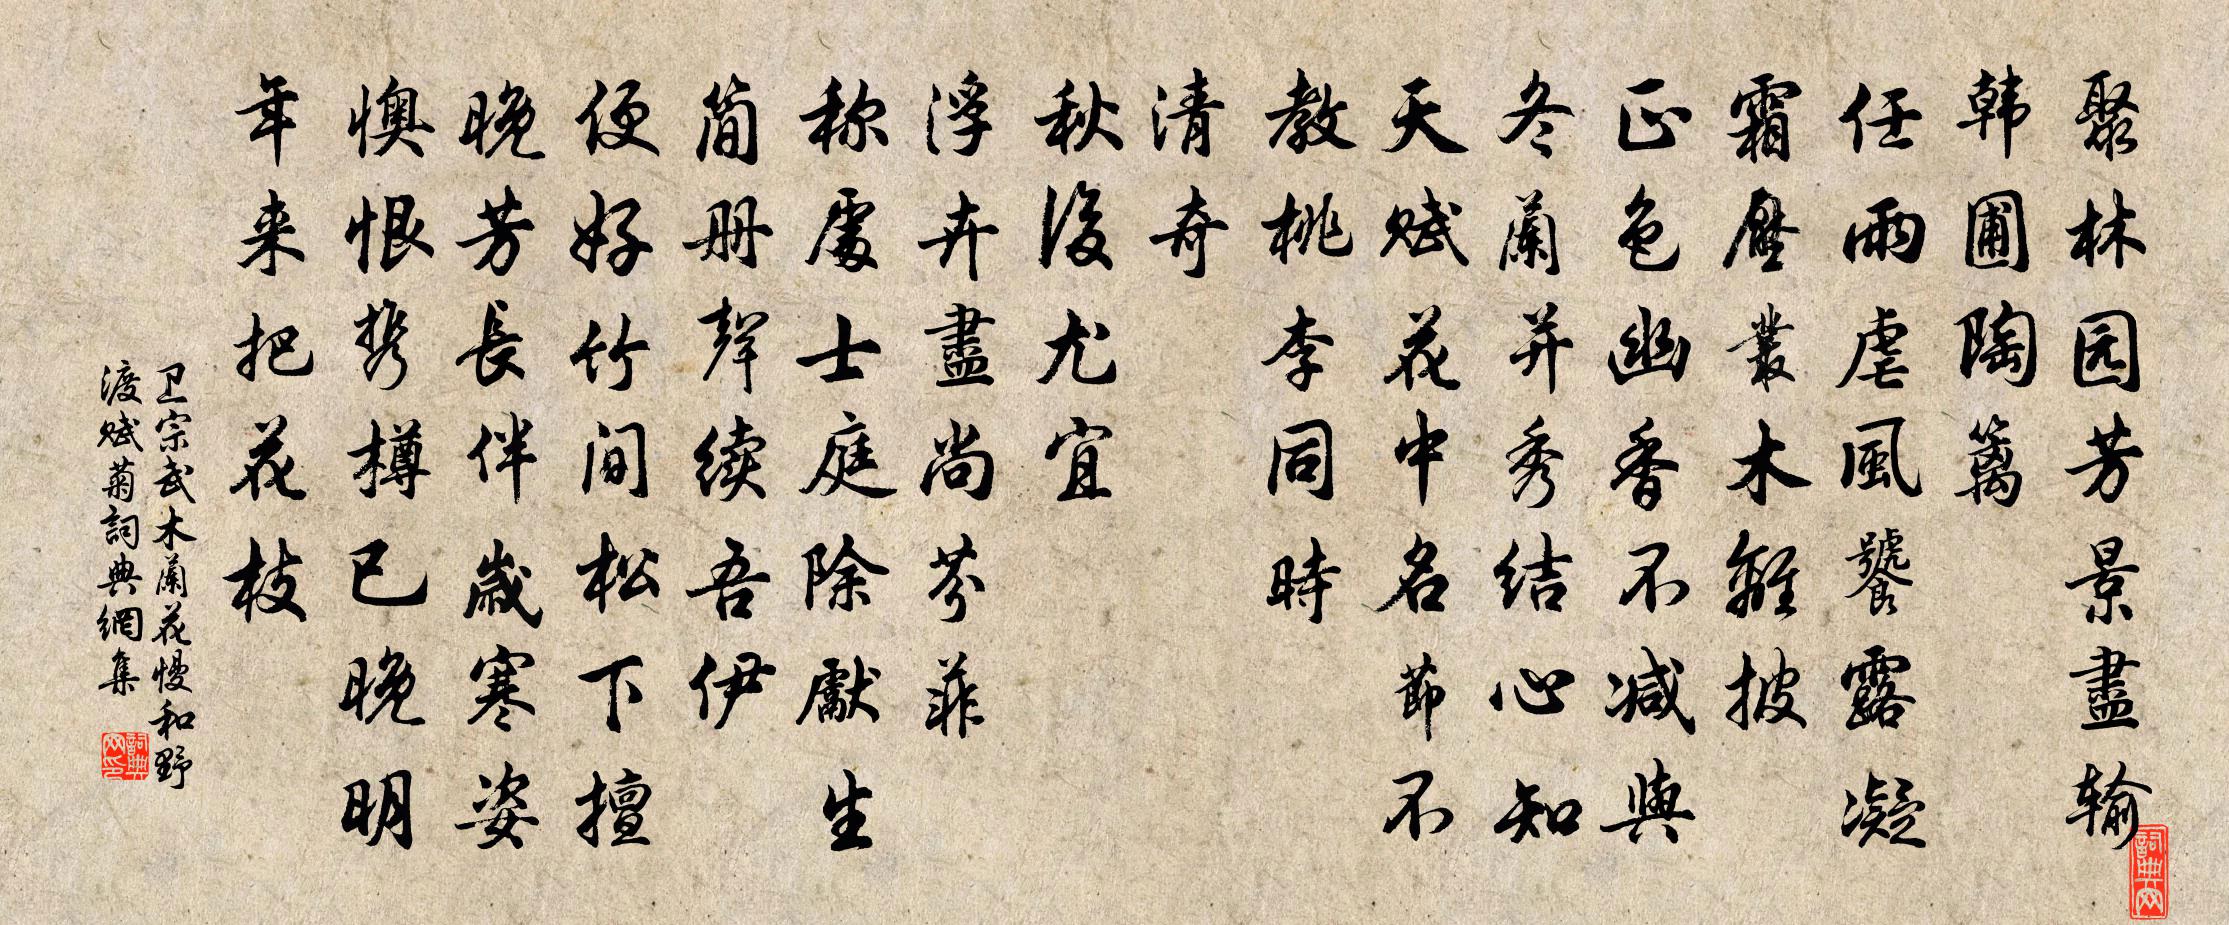 聚林园芳景盡输
韩圃陶篱
任雨虐風饕露凝
霜壓叢木難披
正色幽香不减與
冬蘭并秀结心知
天赋花中名節不
教桃李同時
清奇
秋後尤宜
浮卉盡尚芬菲
称處士庭除獻生
简册聲续吾伊
便好竹间松下擅
晚芳長伴歲寒姿
懊恨携樽已晚明
年来把花枝
卫宗武木蘭花慢和野
渡赋菊詞典網集
詞典网印
詞典网